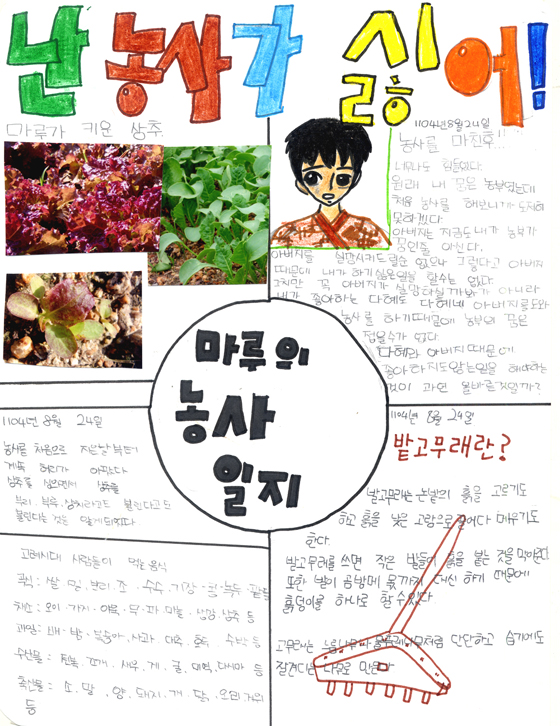 난 농사가 싫어!
마루가 키운 상추
1104년 8월 24일
농사를 마친 후...
너무나도 힘들었다.
원래 내 꿈은 농부였는데
처음 농사를 해보니까 도저히
못하겠다.
아버지는 지금도 내가 농부가
꿈인줄 아신다.
아버지를 실망시켜드릴순 없으니 그렇다고 아버지
때문에 내가 하기싫은일을 할수는 없다
그치만 꼭 아버지가 실망하실까봐가 아니라
내가 좋아하는 다혜도 다혜네 아버지를도와
농사를 하기때문에 농부의 꿈은
접을수가 없다
다혜와 아버지때문에
좋아하지도않는일을 해야하는
것이 과연 올바른것일까?
마루의
농사
일지
1104년 8월 24일
농사를 처음으로 지은날부터
계속 허리가 아팠다
상추를 심으면서 상추를
부리, 부루, 상치라고도 불린다고도
불린다는 것도 알게되었다.
고려시대 사람들이 먹는 음식
곡식: 쌀·밀·보리·조·수수·기장·콩·녹두·팥등
채소: 오이·가지·아욱·무·파·마늘·생강·상추 등
과일: 배·밤·복숭아·사과·대추·호두·수박 등
수산물: 조개·새우·게·굴·미역·다시마 등
축산물: 소·말·양·돼지·개·닭·오리·거위
등
1104년 8월 24일
밭고무래란?
밭고무래는 논밭의 흙을 고르기도
하고 흙을 낮은 고랑으로 끌어다 메우기도
한다.
밭고무래를 쓰면 작은 발들이 흙을 붙는 것을 막아준다
또한 밭이 곰방메 몫까지 대신 하기 때문에
흙덩이를 하나로 할수있다.
고무래는 느릅나무와 물푸레나무처럼 단단하고 습기에도
잘견디는 나무로 만든다